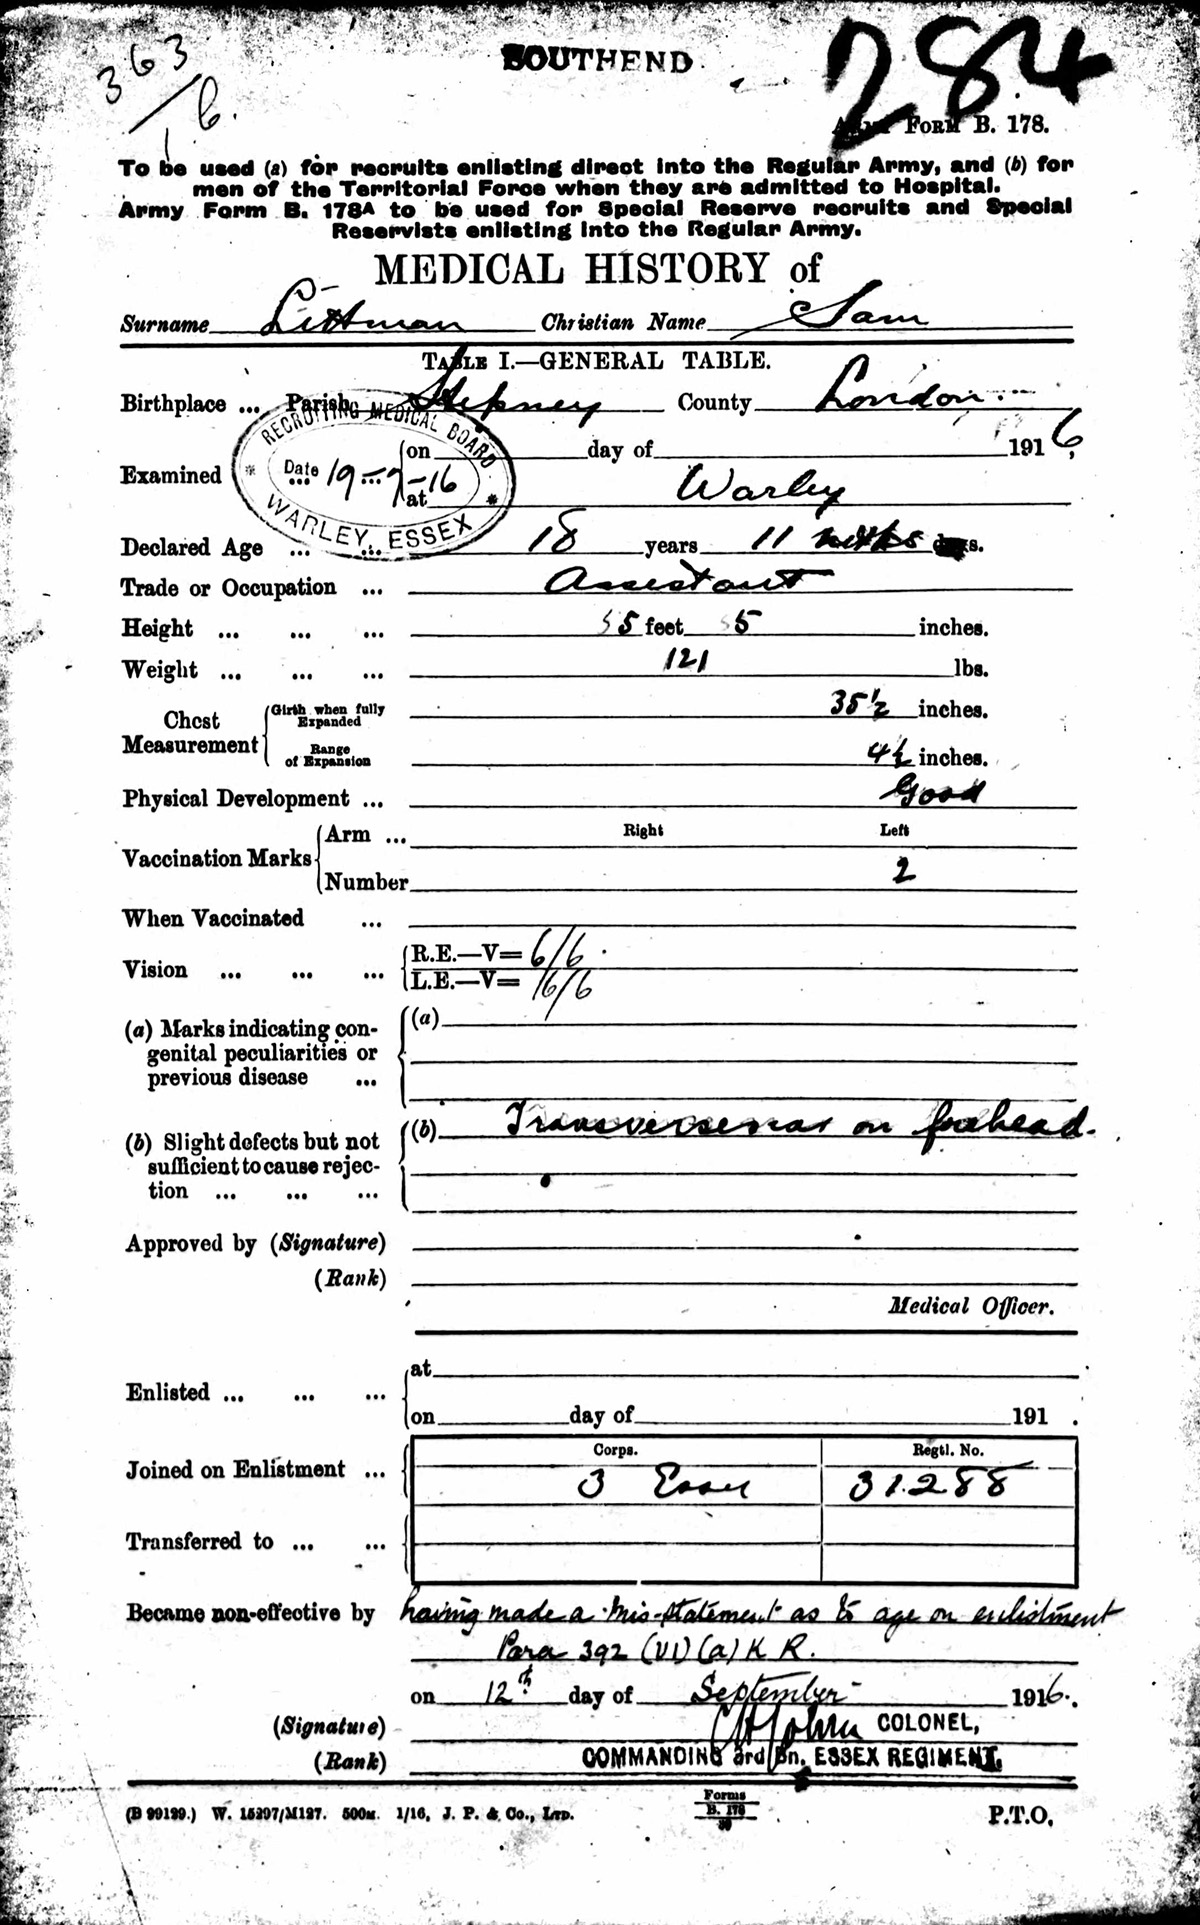 363/16.
SOUTHEND
284
ARMY FORM B. 178.
To be used (a) for recruits enlisting direct into the Regular Army, and (b) for
men of the Territorial Force when they are admitted to Hospital.
Army Form B. 178A to be used for Special Reserve recruits and Special
Reservists enlisting into the Regular Army.
MEDICAL HISTORY of
Surname Littman Christian Name Sam
TABLE I.—GENERAL TABLE.
Birthplace ... Parish Stepney County London
RECRUITING MEDICAL BOARD
Date 19-7-16
WARLEY, ESSEX
Examined on day of 1916,
at Warley
Declared Age ... ... 18 years 11 mths days.
Trade or Occupation ... Assistant
Height ... ... ... 5 feet 5 inches.
Weight ... ... ... 121 lbs.
Chest Measurement Girth when fully Expanded 35½ inches.
Range of Expansion 4½ inches.
Physical Development ... Good
Vaccination Marks Arm ... Right Left
Number 2
When Vaccinated ...
Vision ... ... ... R.E.—V= 6/6
L.E.—V= 6/6
(a) Marks indicating con-
genital peculiarities or
previous disease ...
(a)
(b) Slight defects but not
sufficient to cause rejec-
tion ... ... ...
(b) Transverse scar on forehead.
Approved by (Signature)
(Rank)
Medical Officer.
Enlisted ... ... ... at
on day of 191 .
Corps. Regtl. No.
Joined on Enlistment ... 3 Essex 31288
Transferred to ... ...
Became non-effective by having made a mis-statement as to age on enlistment
Para 392 (VI) (a) K R.
on 12th day of September 1916.
(Signature) COLONEL,
(Rank) COMMANDING 3rd Bn. ESSEX REGIMENT.
(B 99199.) W. 15297/M127. 500M. 1/16, J. P. & Co., LTD.
Forms
B. 178
P.T.O.